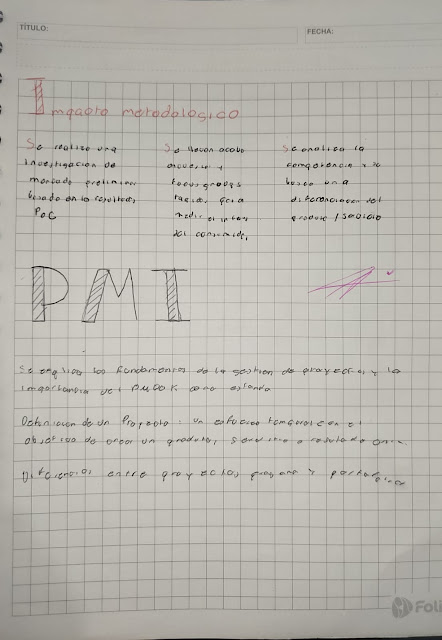 TÍTULO:
FECHA:
Impacto metodologico
Se realiza una
investigacion de
mercado preliminar
basado en los resultados
PoC
Se llevan acabo
encuestas y
focus groups
para
medir el interes
del consumidor
Se analiza la
competencia y se
busca una
diferenciacion del
producto / servicio
PMI
Se explican los fundamentos de la gestion de proyectos y la
importancia del PMBOK como estandar
Definicion de un Proyecto: un esfuerzo temporal con el
objetivo de crear un producto, servicio o resultado
Diferencias entre proyectos, programa y portafolios
Foli